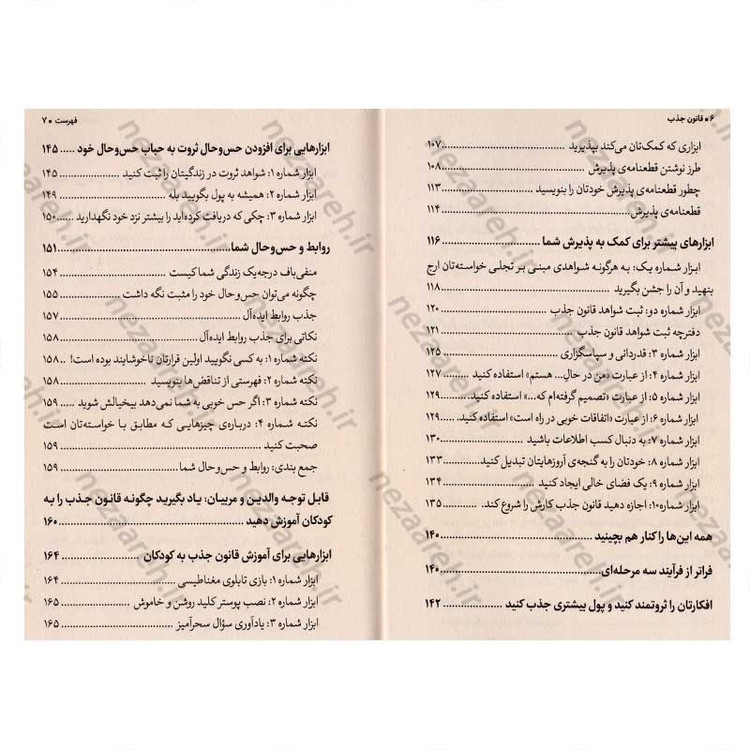 ۶ ▪ قانون جذب
ابزاری که کمک‌تان می‌کند بپذیرید ........ ۱۰۷
طرز نوشتن قطعنامه‌ی پذیرش ........ ۱۰۸
چطور قطعنامه‌ی پذیرش خودتان را بنویسید ........ ۱۱۳
قطعنامه‌ی پذیرش ........ ۱۱۴
ابزارهای بیشتر برای کمک به پذیرش شما ........ ۱۱۶
ابزار شماره یک: به هرگونه شواهدی مبنی بر تجلی خواسته‌تان ارج
بنهید و آن را جشن بگیرید ........ ۱۱۸
ابزار شماره دو: ثبت شواهد قانون جذب ........ ۱۲۰
دفترچه ثبت شواهد قانون جذب ........ ۱۲۱
ابزار شماره ۳: قدردانی و سپاسگزاری ........ ۱۲۵
ابزار شماره ۴: از عبارت «من در حالِ... هستم» استفاده کنید ........ ۱۲۷
ابزار شماره ۵: از عبارت «تصمیم گرفته‌ام که...» استفاده کنید ........ ۱۲۹
ابزار شماره ۶: از عبارت «اتفاقات خوبی در راه است» استفاده کنید ........ ۱۲۹
ابزار شماره ۷: به دنبال کسب اطلاعات باشید ........ ۱۳۰
ابزار شماره ۸: خودتان را به گنجه‌ی آروزهایتان تبدیل کنید ........ ۱۳۳
ابزار شماره ۹: یک فضای خالی ایجاد کنید ........ ۱۳۴
ابزار شماره۱۰: اجازه دهید قانون جذب کارش را شروع کند. ........ ۱۳۵
همه این‌ها را کنار هم بچینید ........ ۱۴۰
فراتر از فرآیند سه مرحله‌ای ........ ۱۴۰
افکارتان را ثروتمند کنید و پول بیشتری جذب کنید ........ ۱۴۲
فهرست ▪ ۷
ابزارهایی برای افزودن حس‌وحال ثروت به حباب حس‌وحال خود ..... ۱۴۵
ابزار شماره ۱: شواهد ثروت در زندگیتان را ثبت کنید ........ ۱۴۵
ابزار شماره ۲: همیشه به پول بگویید بله ........ ۱۴۹
ابزار شماره ۳: چکی که دریافت کرده‌اید را بیشتر نزد خود نگهدارید ..... ۱۵۰
روابط و حس‌وحال شما ........ ۱۵۱
منفی‌باف درجه‌یک زندگی شما کیست ........ ۱۵۴
چگونه می‌توان حس‌وحال خود را مثبت نگه داشت ........ ۱۵۵
جذب روابط ایده‌آل ........ ۱۵۷
نکاتی برای جذب روابط ایده‌آل ........ ۱۵۸
نکته شماره ۱: به کسی نگویید اولین قرارتان ناخوشایند بوده است! ... ۱۵۸
نکته شماره ۲: فهرستی از تناقض‌ها بنویسید ........ ۱۵۸
نکته شماره ۳: اگر حس خوبی به شما نمی‌دهد بیخیالش شوید ........ ۱۵۹
نکته شماره ۴: درباره‌ی چیزهایی که مطابق با خواسته‌تان است
صحبت کنید ........ ۱۵۹
جمع بندی: روابط و حس‌وحال شما ........ ۱۵۹
قابل توجه والدین و مربیان: یاد بگیرید چگونه قانون جذب را به
کودکان آموزش دهید ........ ۱۶۰
ابزارهایی برای آموزش قانون جذب به کودکان ........ ۱۶۴
ابزار شماره ۱: بازی تابلوی مغناطیسی ........ ۱۶۴
ابزار شماره ۲: نصب پوستر کلید روشن و خاموش ........ ۱۶۵
ابزار شماره ۳: یادآوری سؤال سحرآمیز ........ ۱۶۵
nezaareh.ir